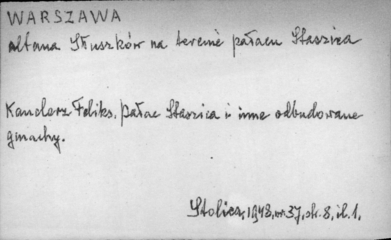 WARSZAWA
altana Słuszków na terenie pałacu Staszica
Kanclerz Feliks, Pałac Staszica i inne odbudowane
gmachy.
Stolica, 1948, nr. 37, str. 8, il. 1.